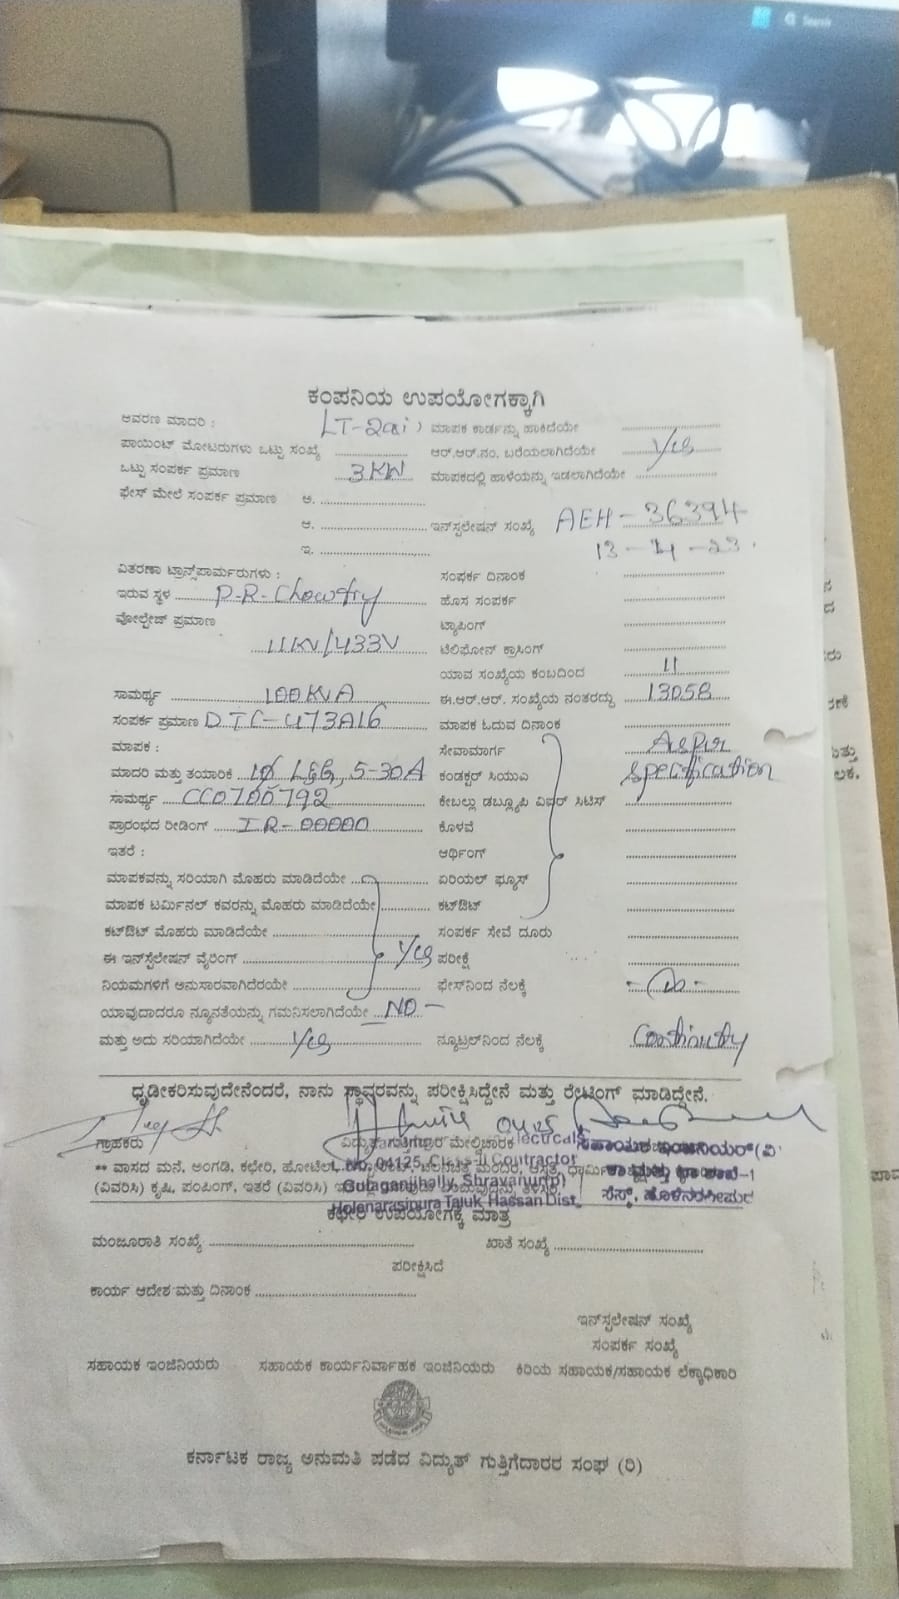 Search
ಕಂಪನಿಯ ಉಪಯೋಗಕ್ಕಾಗಿ
ಆವರಣ ಮಾದರಿ : LT-2ai) ಮಾಪಕ ಕಾರ್ಡನ್ನು ಹಾಕಿದೆಯೇ
ಪಾಯಿಂಟ್ ಮೋಟರುಗಳು ಒಟ್ಟು ಸಂಖ್ಯೆ ಆರ್.ಆರ್.ನಂ. ಬರೆಯಲಾಗಿದೆಯೇ
ಒಟ್ಟು ಸಂಪರ್ಕ ಪ್ರಮಾಣ 3KW ಮಾಪಕದಲ್ಲಿ ಹಾಳೆಯನ್ನು ಇಡಲಾಗಿದೆಯೇ
ಫೇಸ್ ಮೇಲೆ ಸಂಪರ್ಕ ಪ್ರಮಾಣ ಅ.
ಆ. ಇನ್‌ಸ್ಟಲೇಷನ್ ಸಂಖ್ಯೆ AEH-36394
ಇ. 13-4-23.
ವಿತರಣಾ ಟ್ರಾನ್ಸ್‌ಪಾರ್ಮರುಗಳು : ಸಂಪರ್ಕ ದಿನಾಂಕ
ಇರುವ ಸ್ಥಳ P-R-Chowtry ಹೊಸ ಸಂಪರ್ಕ
ವೋಲ್ಟೇಜ್ ಪ್ರಮಾಣ ಟ್ಯಾಪಿಂಗ್
11KV/433V ಟೆಲಿಫೋನ್ ಕ್ರಾಸಿಂಗ್
ಯಾವ ಸಂಖ್ಯೆಯ ಕಂಬದಿಂದ 11
ಸಾಮರ್ಥ್ಯ 100KVA ಈ.ಆರ್.ಆರ್. ಸಂಖ್ಯೆಯ ನಂತರದ್ದು 13058
ಸಂಪರ್ಕ ಪ್ರಮಾಣ DTC-473A16 ಮಾಪಕ ಓದುವ ದಿನಾಂಕ
ಮಾಪಕ : ಸೇವಾಮಾರ್ಗ As per
ಮಾದರಿ ಮತ್ತು ತಯಾರಿಕೆ 1Ø L&G, 5-30A ಕಂಡಕ್ಟರ್ ಸಿಯುಎ specification
ಸಾಮರ್ಥ್ಯ CC0700792 ಕೇಬಲ್ಲು ಡಬ್ಲ್ಯೂಪಿ ವಿಐಆರ್ ಸಿಟಿಸ್
ಪ್ರಾರಂಭದ ರೀಡಿಂಗ್ IR-00000 ಕೊಳವೆ
ಇತರೆ : ಆರ್ಥಿಂಗ್
ಮಾಪಕವನ್ನು ಸರಿಯಾಗಿ ಮೊಹರು ಮಾಡಿದೆಯೇ ಏರಿಯಲ್ ಫ್ಯೂಸ್
ಮಾಪಕ ಟರ್ಮಿನಲ್ ಕವರನ್ನು ಮೊಹರು ಮಾಡಿದೆಯೇ ಕಟ್‌ಔಟ್
ಕಟ್‌ಔಟ್ ಮೊಹರು ಮಾಡಿದೆಯೇ ಸಂಪರ್ಕ ಸೇವೆ ದೂರು
ಈ ಇನ್‌ಸ್ಟಲೇಷನ್ ವೈರಿಂಗ್ ಪರೀಕ್ಷೆ
ನಿಯಮಗಳಿಗೆ ಅನುಸಾರವಾಗಿದೆರಯೇ ಫೇಸ್‌ನಿಂದ ನೆಲಕ್ಕೆ
ಯಾವುದಾದರೂ ನ್ಯೂನತೆಯನ್ನು ಗಮನಿಸಲಾಗಿದೆಯೇ NO -
ಮತ್ತು ಅದು ಸರಿಯಾಗಿದೆಯೇ ನ್ಯೂಟ್ರಲ್‌ನಿಂದ ನೆಲಕ್ಕೆ Continuty
ಧೃಡೀಕರಿಸುವುದೇನೆಂದರೆ, ನಾನು ಸ್ಥಾವರವನ್ನು ಪರೀಕ್ಷಿಸಿದ್ದೇನೆ ಮತ್ತು ರೇಟಿಂಗ್ ಮಾಡಿದ್ದೇನೆ.
ಗ್ರಾಹಕರು ವಿದ್ಯುತ್ ಗುತ್ತಿಗೆದಾರ ಮೇಲ್ವಿಚಾರಕ ಸಹಾಯಕ ಇಂಜಿನಿಯರ್(ವಿ
** ವಾಸದ ಮನೆ, ಅಂಗಡಿ, ಕಛೇರಿ, ಹೋಟೆಲ್
L.No. 04125, Class-II Contractor
(ವಿವರಿಸಿ) ಕೃಷಿ, ಪಂಪಿಂಗ್, ಇತರೆ (ವಿವರಿಸಿ)
Gulaganjihally, Shravanur(p)
ಸೆಸ್ಕ್, ಹೊಳೆನರಸೀಪುರ
Holenarasipura Taluk, Hassan Dist,
ಕಛೇರಿ ಉಪಯೋಗಕ್ಕೆ ಮಾತ್ರ
ಮಂಜೂರಾತಿ ಸಂಖ್ಯೆ ಖಾತೆ ಸಂಖ್ಯೆ
ಪರೀಕ್ಷಿಸಿದೆ
ಕಾರ್ಯ ಆದೇಶ ಮತ್ತು ದಿನಾಂಕ
ಇನ್‌ಸ್ಟಲೇಷನ್ ಸಂಖ್ಯೆ
ಸಂಪರ್ಕ ಸಂಖ್ಯೆ
ಸಹಾಯಕ ಇಂಜಿನಿಯರು ಸಹಾಯಕ ಕಾರ್ಯನಿರ್ವಾಹಕ ಇಂಜಿನಿಯರು ಕಿರಿಯ ಸಹಾಯಕ/ಸಹಾಯಕ ಲೆಕ್ಕಾಧಿಕಾರಿ
ಕರ್ನಾಟಕ ರಾಜ್ಯ ಅನುಮತಿ ಪಡೆದ ವಿದ್ಯುತ್ ಗುತ್ತಿಗೆದಾರರ ಸಂಘ (ರಿ)